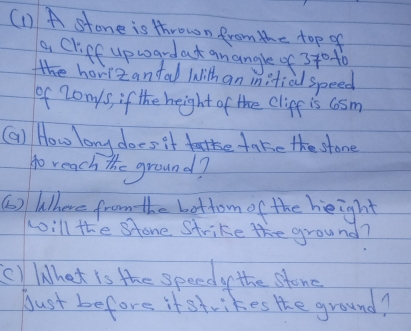 (1) A stone is thrown from the top of
a Cliff upward at an angle of 37° to
the horizantal with an initial speed
of 20m/s, if the height of the Cliff is 65m
(a) How long does it take the stone
to reach the ground?
(b) Where from the bottom of the hieight
will the stone strike the ground?
(C) What is the speed of the stone
just before it strikes the ground?